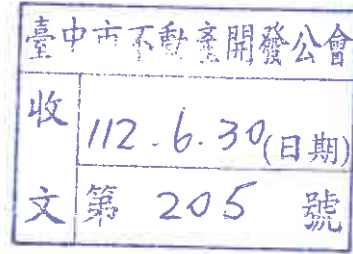 臺中市不動產開發公會
收
112.6.30(日期)
文
第 205 號